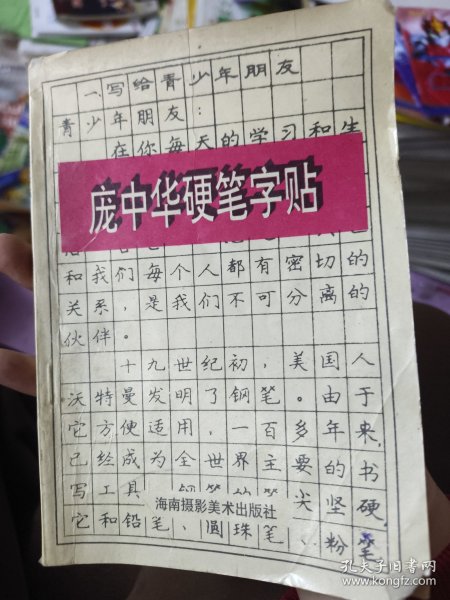 一、写给青少年朋友
青少年朋友：
在你每天的学习和生
庞中华硬笔字贴
和我们每个人都有密切的
关系，是我们不可分离的
伙伴。
十九世纪初，美国人
沃特曼发明了钢笔。由于
它方便适用，一百多年来，
已经成为全世界主要的书
写工具
尖坚硬，
海南摄影美术出版社
它和铅笔、圆珠笔、粉笔
孔夫子旧书网